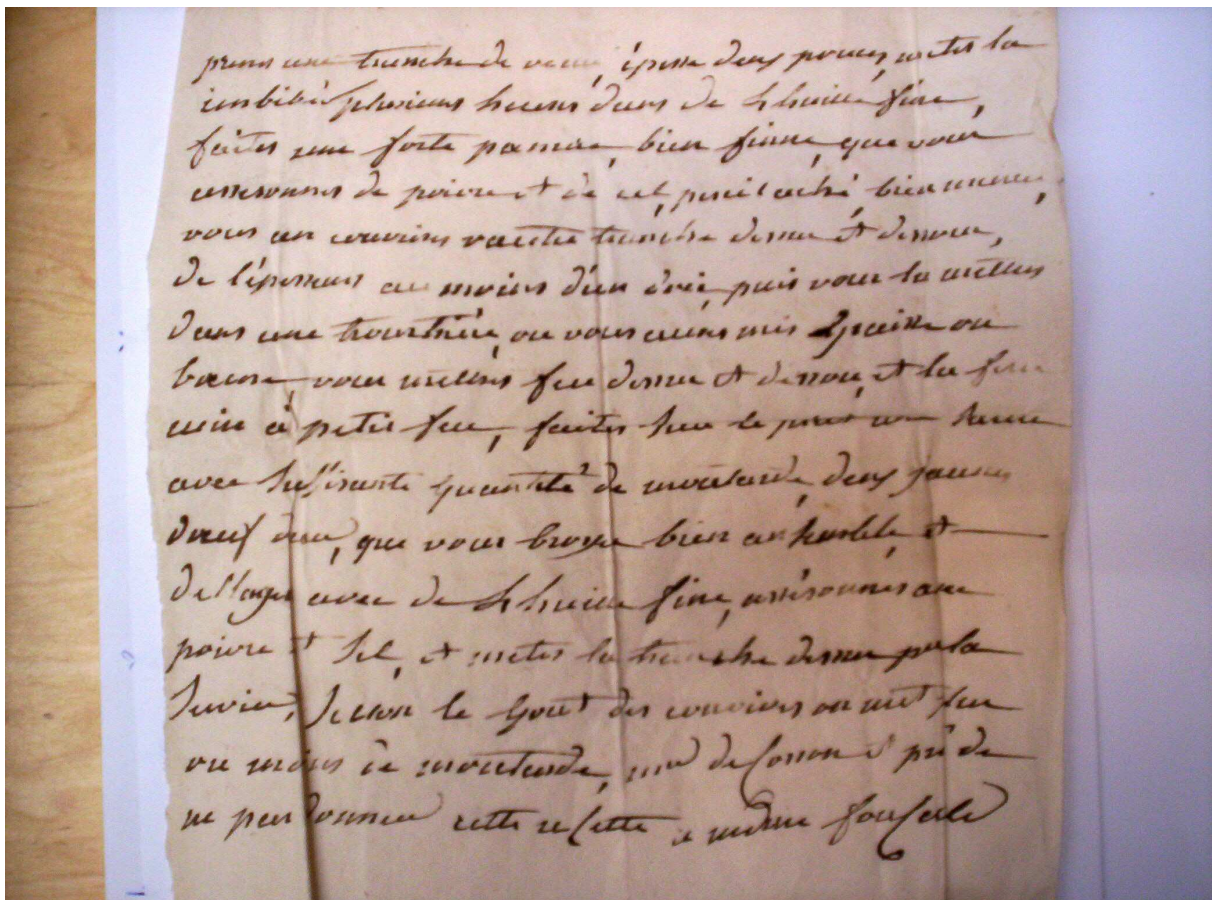 prenes une tranche de veau, épesse deux pouces, metes la
imbiber plusieurs heures dans de lhuille fine,
faites une forte pannure, bien finne, que vous
assesonnes de poivre et de cel, persil aché bien menu,
vous en couvrires vautre tranche dessu et dessous,
de l'épesseur au moins d'un écu, puis vous la mettres
dans une tourtiere, ou vous aures mis graisse ou
beurre, vous mettres feu dessu et dessou, et la fere
cuire à petit feu, faites sur le une
avec sufisante quantité de moutarde, deux jaunes
dœuf dur, que vous broye bien ensemble, et
dellayer avec de lhuille fine, assésonnes avec
poivre et sel, et metes la tranche dessu pr la
servir, selon le gout des convives on met peu
ou moins de moutarde, mr de et prié de
ne pas donner cette recette a